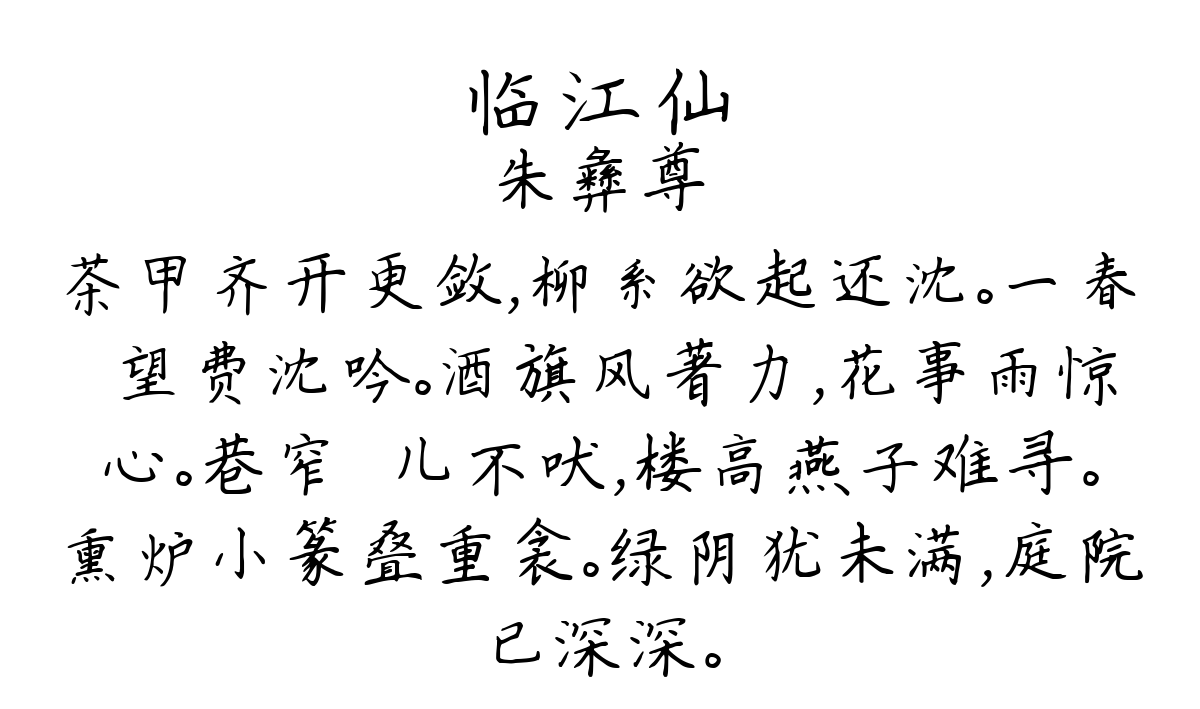 临江仙
朱彝尊
茶甲齐开更敛,柳糸欲起还沈。一春
望费沈吟。酒旗风著力,花事雨惊
心。巷窄 儿不吠,楼高燕子难寻。
熏炉小篆叠重衾。绿阴犹未满,庭院
已深深。